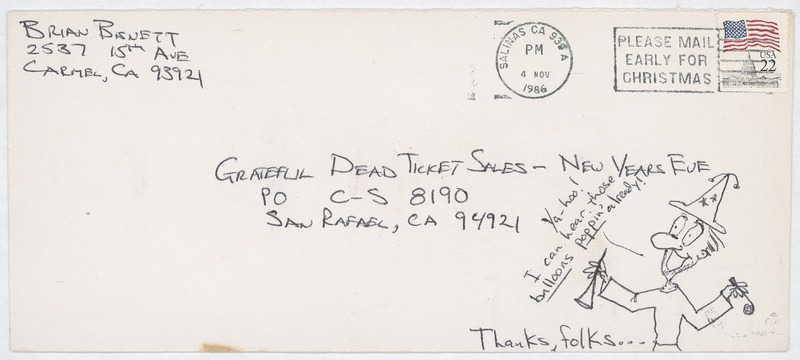 BRIAN BISNETT
2537 15TH AVE
CARMEL, CA 93921
SALINAS CA 939 A
PM
4 NOV
1986
PLEASE MAIL
EARLY FOR
CHRISTMAS
USA
22
GRATEFUL DEAD TICKET SALES - NEW YEARS EVE
PO C-S 8190
SAN RAFAEL, CA 94921
Ya-hoo!
I can hear those
balloons poppin' already!
Thanks, folks...